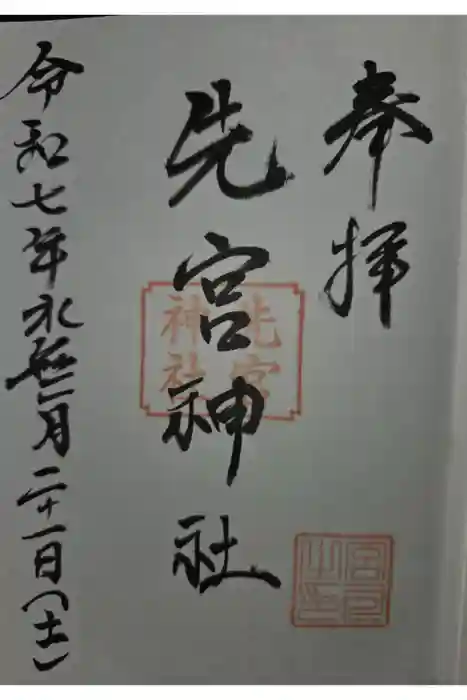 奉拝
先宮神社
先宮
神社
令和七年水無月二十一日(土)